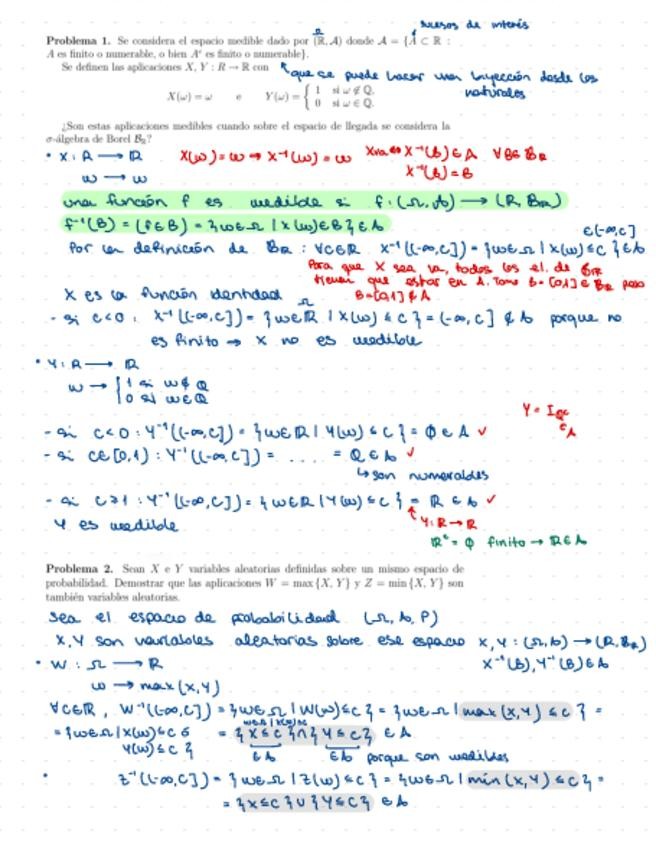 sucesos de interés
Problema 1. Se considera el espacio medible dado por (ℝ, A) donde A = {A ⊂ ℝ :
Ω
A es finito o numerable, o bien Aᶜ es finito o numerable}.
que se puede hacer una inyección desde los naturales
Se definen las aplicaciones X, Y : R → R con
X(ω) = ω e Y(ω) = { 1 si ω ∉ Q, 0 si ω ∈ Q.
¿Son estas aplicaciones medibles cuando sobre el espacio de llegada se considera la
σ-álgebra de Borel B_R?
• X: R → R X(ω)=ω → X⁻¹(ω)=ω X va ⇔ X⁻¹(B) ∈ A ∀B∈ B_R
ω → ω X⁻¹(B) = B
una función f es medible si f: (Ω, A) → (R, B_R)
f⁻¹(B) = (f∈B) = {ω∈Ω | X(ω)∈B} ∈ A
∈(-∞,c]
Por la definición de B_R : ∀c∈R X⁻¹((-∞,c]) = {ω∈Ω | X(ω) ≤ c} ∈ A
Para que X sea va, todos los el. de B_R
tienen que estar en A. Tomo B=[0,1] ∈ B_R pero
X es la función identidad B=[0,1] ∉ A
Ω
- si c<0 : X⁻¹((-∞,c]) = {ω∈R | X(ω) ≤ c} = (-∞,c] ∉ A porque no
es finito → X no es medible
• Y: R → R
ω → { 1 si ω∉Q
0 si ω∈Q
Y = I_Qᶜ
∈A
- si c<0 : Y⁻¹((-∞,c]) = {ω∈R | Y(ω) ≤ c} = ∅ ∈ A ✓
- si c∈[0,1) : Y⁻¹((-∞,c]) = .... = Q ∈ A ✓
↳ son numerables
- si c≥1 : Y⁻¹((-∞,c]) = {ω∈R | Y(ω) ≤ c} = R ∈ A ✓
Y es medible Y: R → R
Rᶜ = ∅ finito → R∈A
Problema 2. Sean X e Y variables aleatorias definidas sobre un mismo espacio de
probabilidad. Demostrar que las aplicaciones W = max{X, Y} y Z = min{X, Y} son
también variables aleatorias.
Sea el espacio de probabilidad (Ω, A, P)
X,Y son variables aleatorias sobre ese espacio X,Y : (Ω,A) → (R,B_R)
• W: Ω → R X⁻¹(B), Y⁻¹(B) ∈ A
ω → max(X,Y)
∀c∈R, W⁻¹((-∞,c]) = {ω∈Ω | W(ω) ≤ c} = {ω∈Ω | max(X,Y) ≤ c} =
ω∈Ω | X(ω) ≤c
= {ω∈Ω | X(ω) ≤ c ó = {X≤c} ∩ {Y≤c} ∈ A
Y(ω) ≤ c} ∈A ∈A porque son medibles
• Z⁻¹((-∞,c]) = {ω∈Ω | Z(ω) ≤ c} = {ω∈Ω | min(X,Y) ≤ c} =
= {X≤c} ∪ {Y≤c} ∈ A